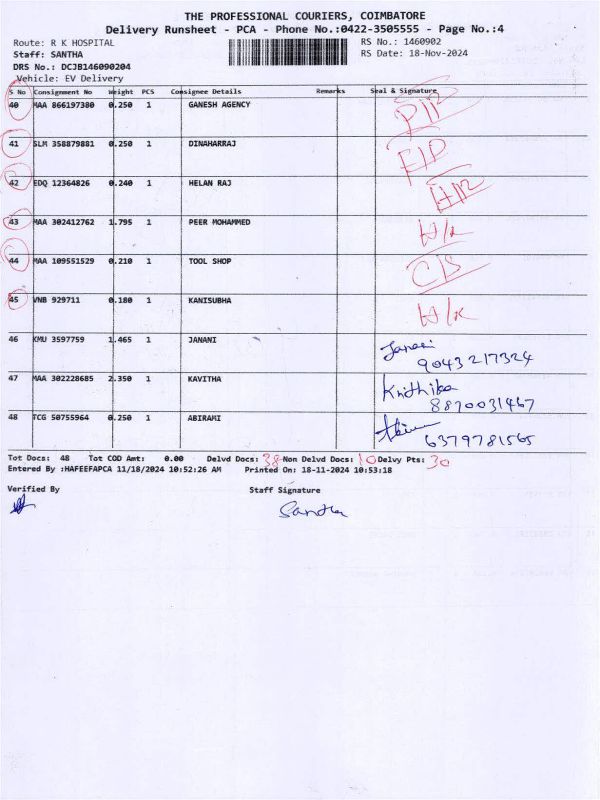 THE PROFESSIONAL COURIERS, COIMBATORE
Delivery Runsheet - PCA - Phone No.:0422-3505555 - Page No.:4
Route: R K HOSPITAL RS No.: 1460902
Staff: SANTHA RS Date: 18-Nov-2024
DRS No.: DCJB146090204
Vehicle: EV Delivery
S No Consignment No Weight PCS Consignee Details Remarks Seal & Signature
40 MAA 866197380 0.250 1 GANESH AGENCY
41 SLM 358879881 0.250 1 DINAHARRAJ
42 EDQ 12364826 0.240 1 HELAN RAJ
43 MAA 302412762 1.795 1 PEER MOHAMMED
44 MAA 109551529 0.210 1 TOOL SHOP
45 VNB 929711 0.180 1 KANISUBHA
46 KMU 3597759 1.465 1 JANANI Janani
9043217324
47 MAA 302228685 2.350 1 KAVITHA Krithika
8870031467
48 TCG 50755964 0.250 1 ABIRAMI
6379781565
Tot Docs: 48 Tot COD Amt: 0.00 Delvd Docs: 38 Non Delvd Docs: 10 Delvy Pts: 30
Entered By :HAFEEFAPCA 11/18/2024 10:52:26 AM Printed On: 18-11-2024 10:53:18
Verified By Staff Signature
Santha